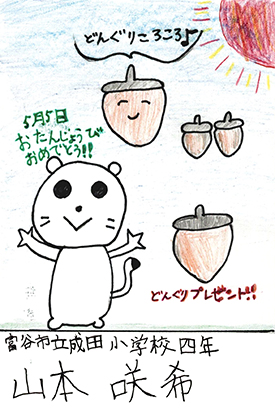 どんぐりころころ♪
5月5日
おたんじょうび
おめでとう!!
どんぐりプレゼント!!
富谷市立成田小学校四年
山本咲希